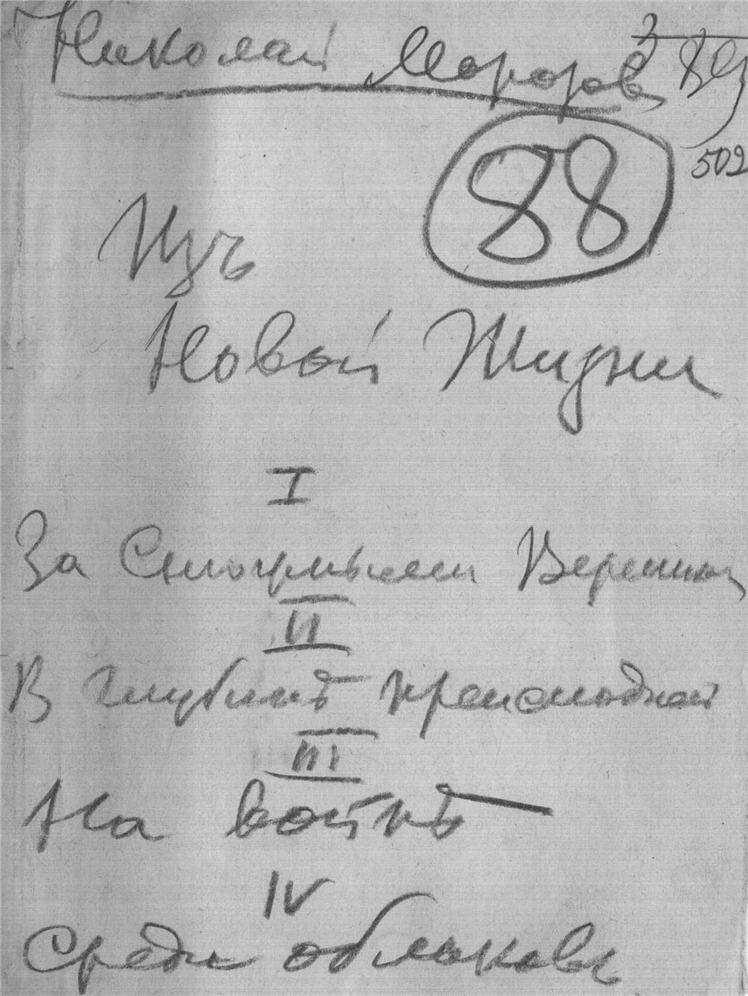 Николай Морозов
88
502
Изъ
Новой Жизни
I
За Снѣговыми Вершинами
II
В глубинѣ преисподней
III
На войнѣ
IV
Среди облаковъ